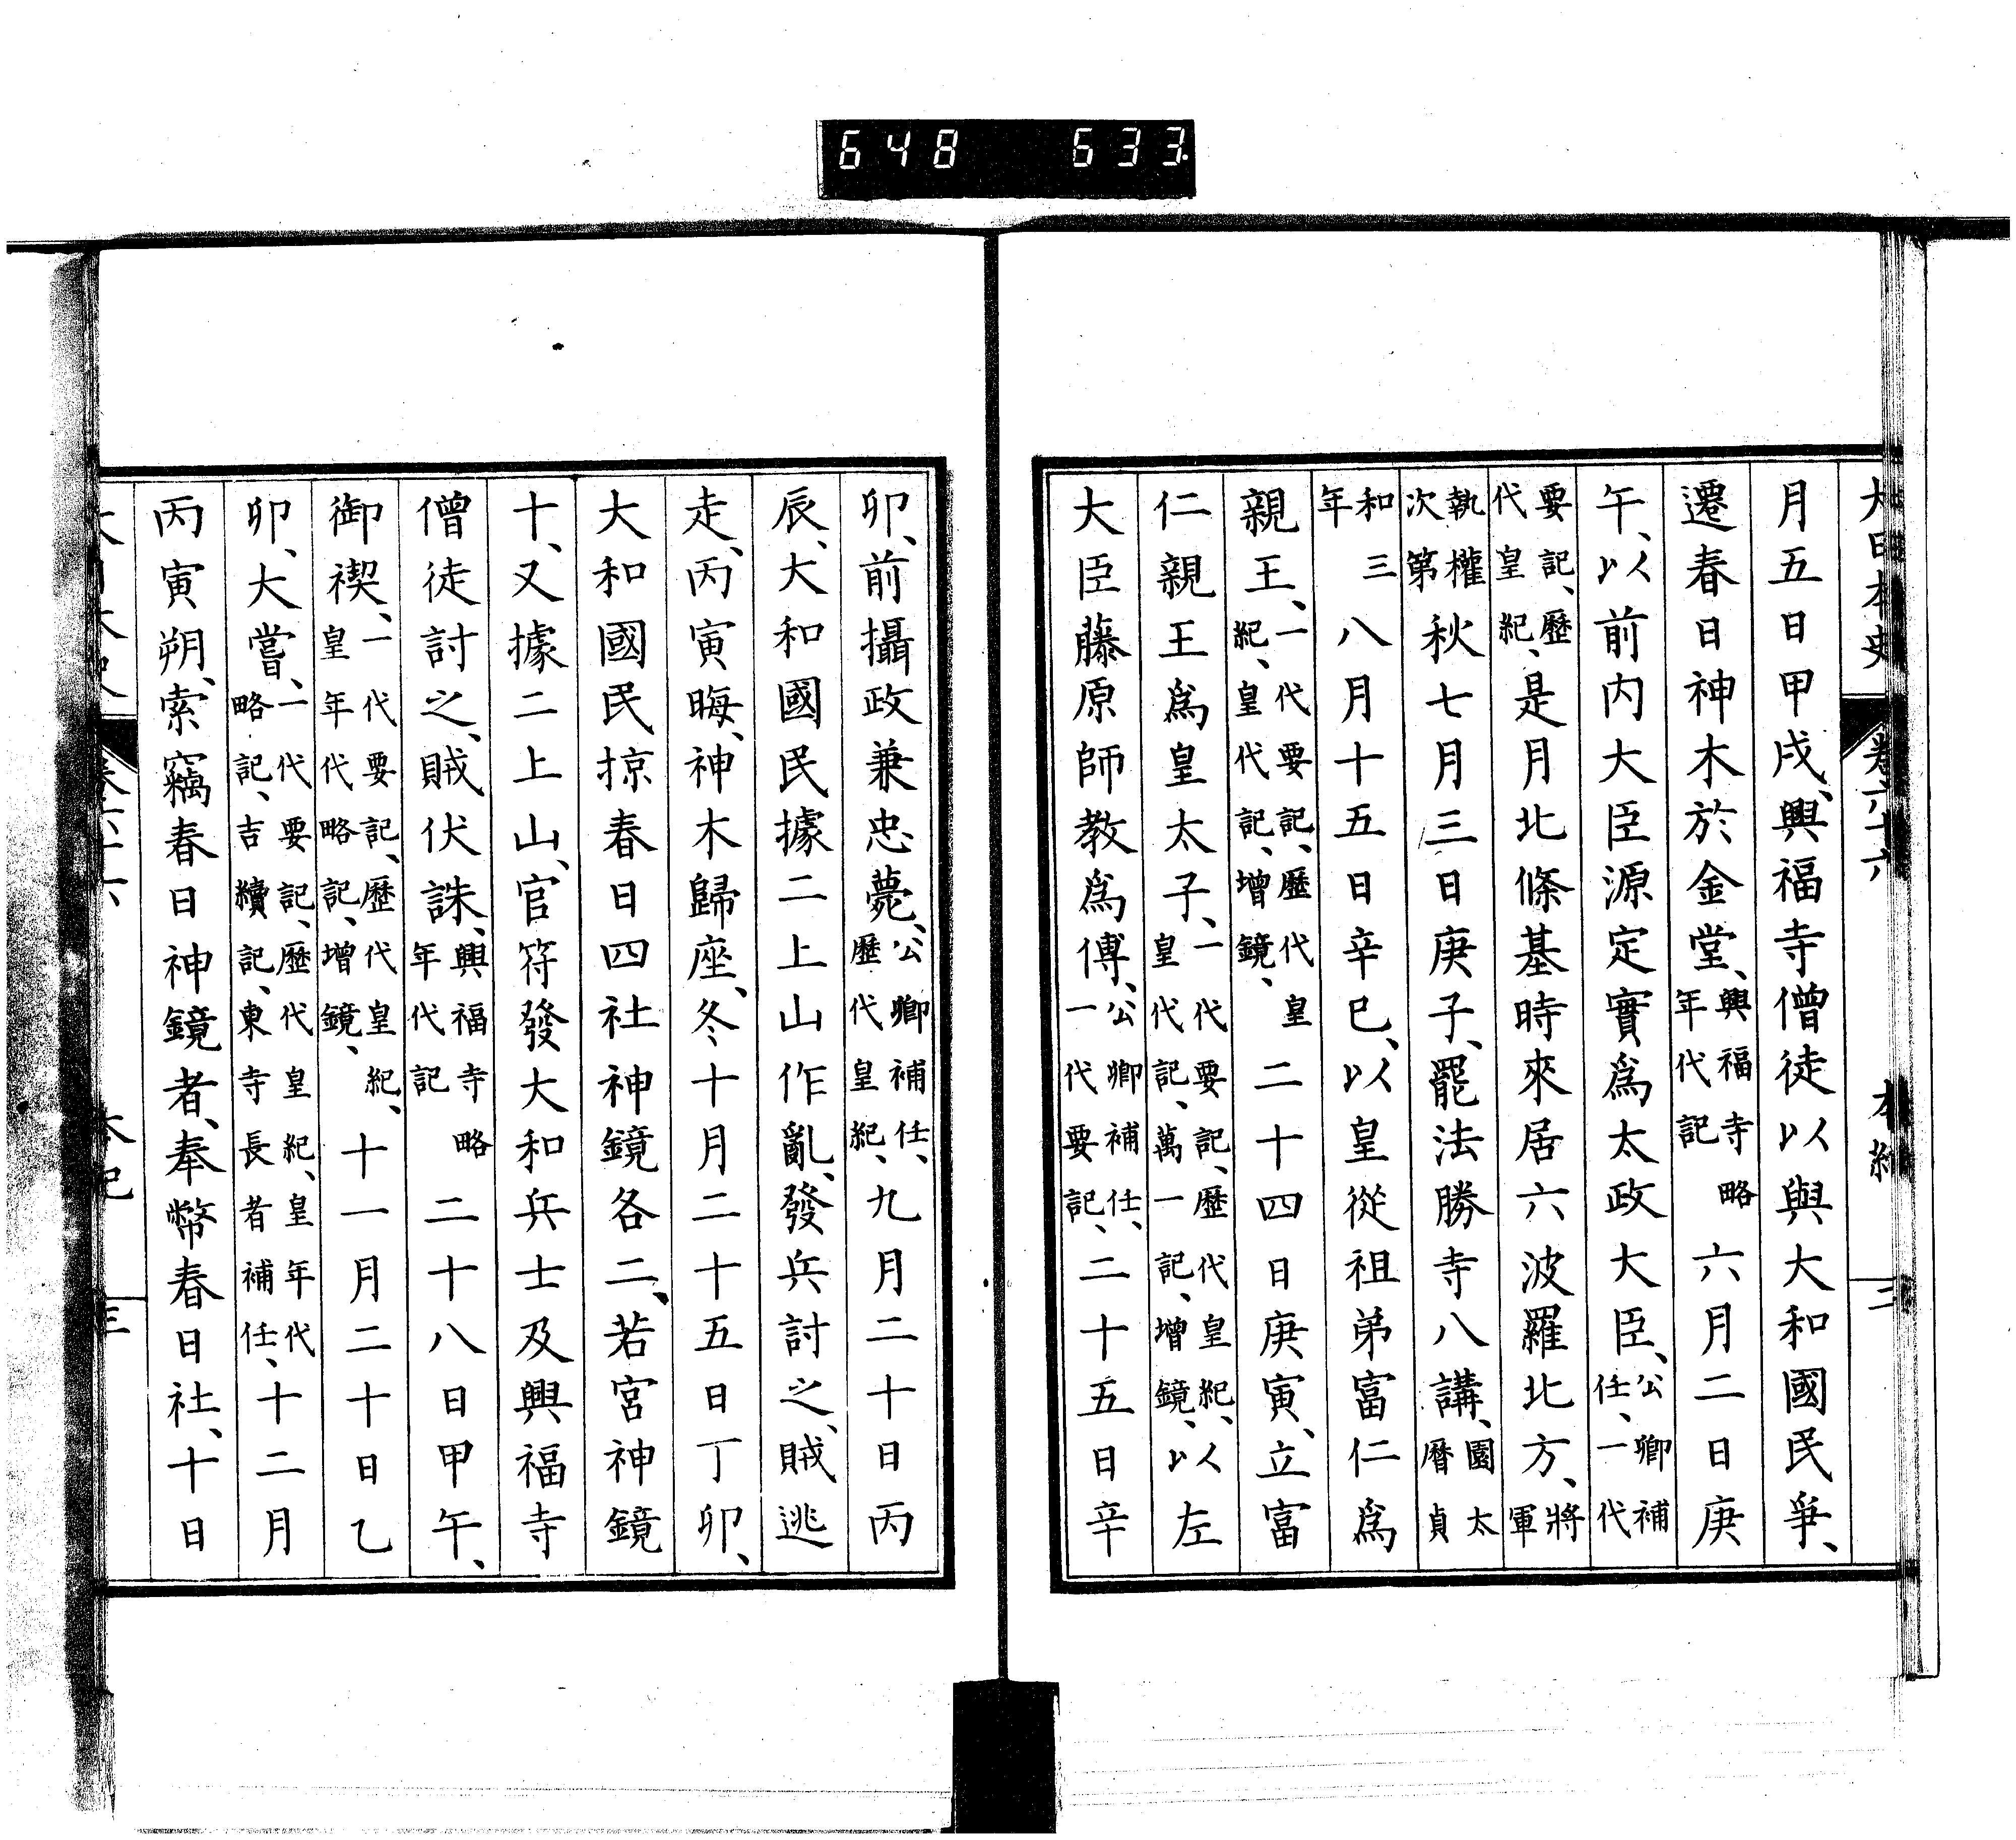 648 633
大日本史 卷六十六 本紀 三
月五日甲戌、興福寺僧徒以與大和國民爭、
遷春日神木於金堂、興福寺略年代記六月二日庚
午、以前内大臣源定實爲太政大臣、公卿補任、一代
要記、歷代皇紀、是月北條基時來居六波羅北方、將軍
執權次第秋七月三日庚子、罷法勝寺八講、園太曆貞
和三年八月十五日辛巳、以皇從祖弟富仁爲
親王、一代要記、歷代皇紀、皇代記、增鏡、二十四日庚寅、立富
仁親王爲皇太子、一代要記、歷代皇紀、皇代記、萬一記、增鏡、以左
大臣藤原師教爲傅、公卿補任、一代要記、二十五日辛
卯、前攝政兼忠薨、公卿補任、歷代皇紀、九月二十日丙
辰、大和國民據二上山作亂、發兵討之、賊逃
走、丙寅晦、神木歸座、冬十月二十五日丁卯、
大和國民掠春日四社神鏡各二、若宮神鏡
十、又據二上山、官符發大和兵士及興福寺
僧徒討之、賊伏誅、興福寺略年代記二十八日甲午、
御禊、一代要記、歷代皇紀、皇年代略記、增鏡、十一月二十日乙
卯、大嘗、一代要記、歷代皇紀、皇年代略記、吉續記、東寺長者補任、十二月
丙寅朔、索竊春日神鏡者、奉幣春日社、十日